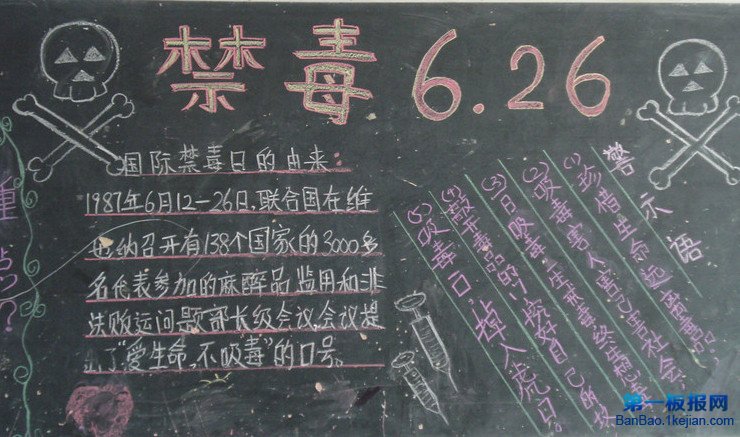 禁毒 6.26
国际禁毒日的由来：
1987年6月12-26日,联合国在维
也纳召开有138个国家的3000多
名代表参加的麻醉品滥用和非
法贩运问题部长级会议,会议提
出了“爱生命,不吸毒”的口号。
警示语
(1)珍惜生命远离毒品
(2)吸毒害人害己害社会
(3)一日吸毒,
(4)
(5)吸毒一口,掉入虎口。
重点
?
第一板报网
BanBao.1kejian.com